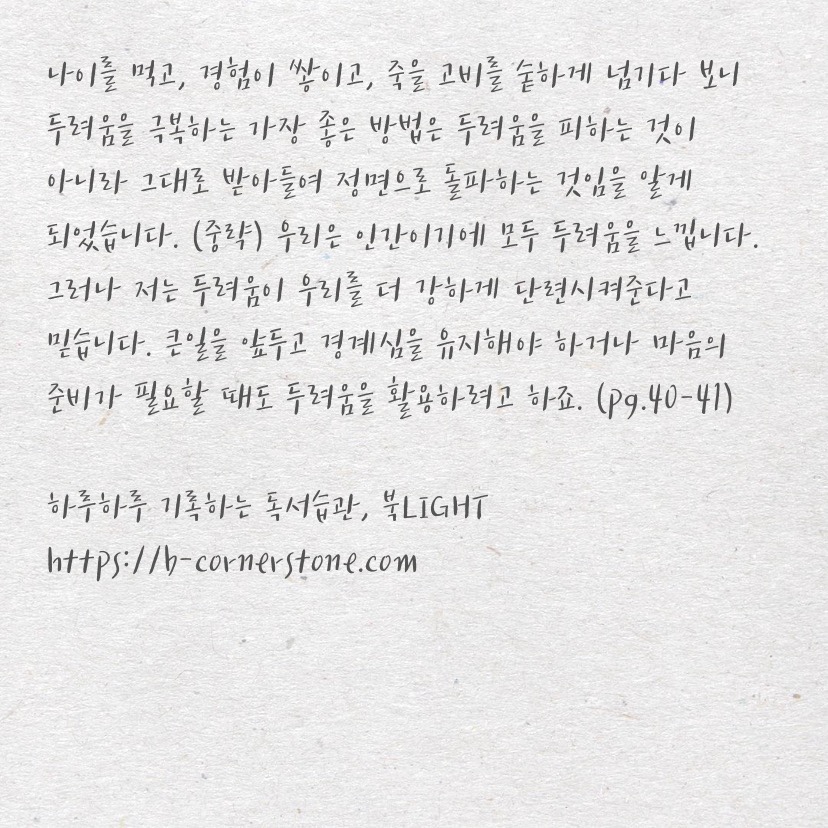 나이를 먹고, 경험이 쌓이고, 죽을 고비를 숱하게 넘기다 보니
두려움을 극복하는 가장 좋은 방법은 두려움을 피하는 것이
아니라 그대로 받아들여 정면으로 돌파하는 것임을 알게
되었습니다. (중략) 우리은 인간이기에 모두 두려움을 느낍니다.
그러나 저는 두려움이 우리를 더 강하게 단련시켜준다고
믿습니다. 큰일을 앞두고 경계심을 유지해야 하거나 마음의
준비가 필요할 때도 두려움을 활용하려고 하죠. (pg.40-41)
하루하루 기록하는 독서습관, 북LIGHT
https://b-cornerstone.com